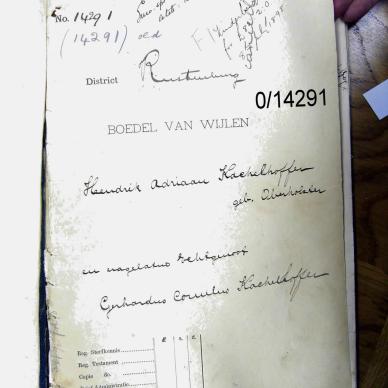 No. 14291
(14291) old
District Rustenburg
0/14291
BOEDEL VAN WIJLEN
Hendrik Adriaan Kachelhoffer
geb. Oberholster
en nagelatene Echtgenoot
Gerhardus Cornelius Kachelhoffer
Reg. Sterfkennis
Reg. Testament
Copie do.
Administratie